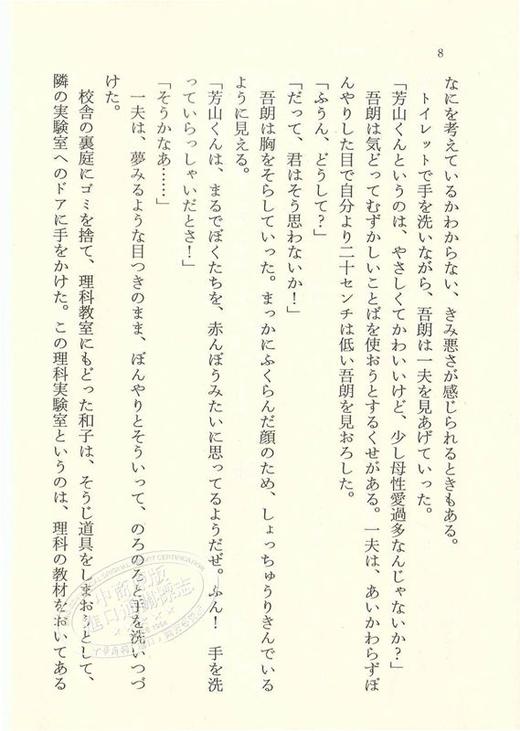 8
なにを考えているかわからない、きみ悪さが感じられるときもある。
トイレットで手を洗いながら、吾朗は一夫を見あげていった。
「芳山くんというのは、やさしくてかわいいけど、少し母性愛過多なんじゃないか?」
吾朗は気どってむずかしいことばを使おうとするくせがある。一夫は、あいかわらずぼ
んやりした目で自分より二十センチは低い吾朗を見おろした。
「ふうん、どうして?」
「だって、君はそう思わないか!」
吾朗は胸をそらしていった。まっかにふくらんだ顔のため、しょっちゅうりきんでいる
ように見える。
「芳山くんは、まるでぼくたちを、赤んぼうみたいに思ってるようだぜ。ふん! 手を洗
っていらっしゃいだとさ!」
「そうかなあ……」
一夫は、夢みるような目つきのまま、ぼんやりとそういって、のろのろと手を洗いつづ
けた。
校舎の裏庭にゴミを捨て、理科教室にもどった和子は、そうじ道具をしまおうとして、
隣の実験室へのドアに手をかけた。この理科実験室というのは、理科の教材をおいてある